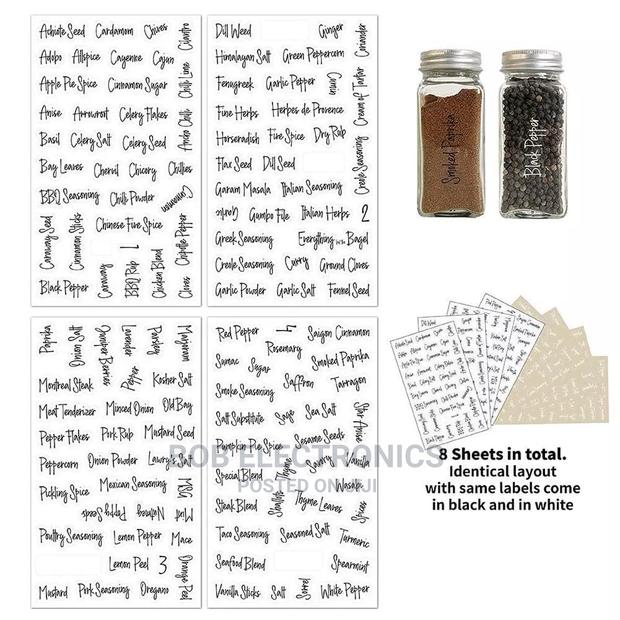 Achiote Seed Cardamom Chives Cilantro
Adobo Allspice Cayenne Cajun
Apple Pie Spice Cinnamon Sugar Chili Lime
Anise Arrowroot Celery Flakes
Basil Celery Salt Celery Seed Ancho Chili
Bay Leaves Chervil Chicory Chilies
BBQ Seasoning Chili Powder Cinnamon
Caraway Seed Cinnamon Sticks Chinese Five Spice
Chipotle Pepper
Black Pepper Caraway BBQ Rub 1 Chicken Blend Cloves
Dill Weed Ginger Coriander
Himalayan Salt Green Peppercorn
Fenugreek Garlic Pepper Cumin Cream of Tartar
Fine Herbs Herbes de Provence
Horseradish Five Spice Dry Rub
Flax Seed Dill Seed Creole Seasoning
Garam Masala Italian Seasoning
Garlic Gumbo File Italian Herbs 2
Greek Seasoning Everything but the Bagel
Creole Seasoning Curry Ground Cloves
Garlic Powder Garlic Salt Fennel Seed
Smoked Paprika
Black Pepper
Paprika Onion Salt Juniper Berries Lavender Parsley Marjoram
Montreal Steak Pepper Kosher Salt
Meat Tenderizer Minced Onion Old Bay
Pepper Flakes Pork Rub Mustard Seed
Peppercorn Onion Powder Lawry's Salt
Pickling Spice Mexican Seasoning MSG
Nutmeg Poppy Seeds Mint
Poultry Seasoning Lemon Pepper Mace
Lemon Peel 3 Orange Peel
Mustard Pork Seasoning Oregano
Red Pepper 4 Saigon Cinnamon
Rosemary
Sumac Sugar Smoked Paprika
Smoke Seasoning Saffron Tarragon
Salt Substitute Sage Sea Salt Star Anise
Pumpkin Pie Spice Sesame Seeds
Special Blend Thyme Savory Vanilla
Shallots Wasabi
Steak Blend Thyme Leaves Spices
Taco Seasoning Seasoned Salt Turmeric
Seafood Blend Spearmint
Vanilla Sticks Salt Sorrel White Pepper
BOB ELECTRONICS
POSTED ON JIJI
8 Sheets in total.
Identical layout
with same labels come
in black and in white